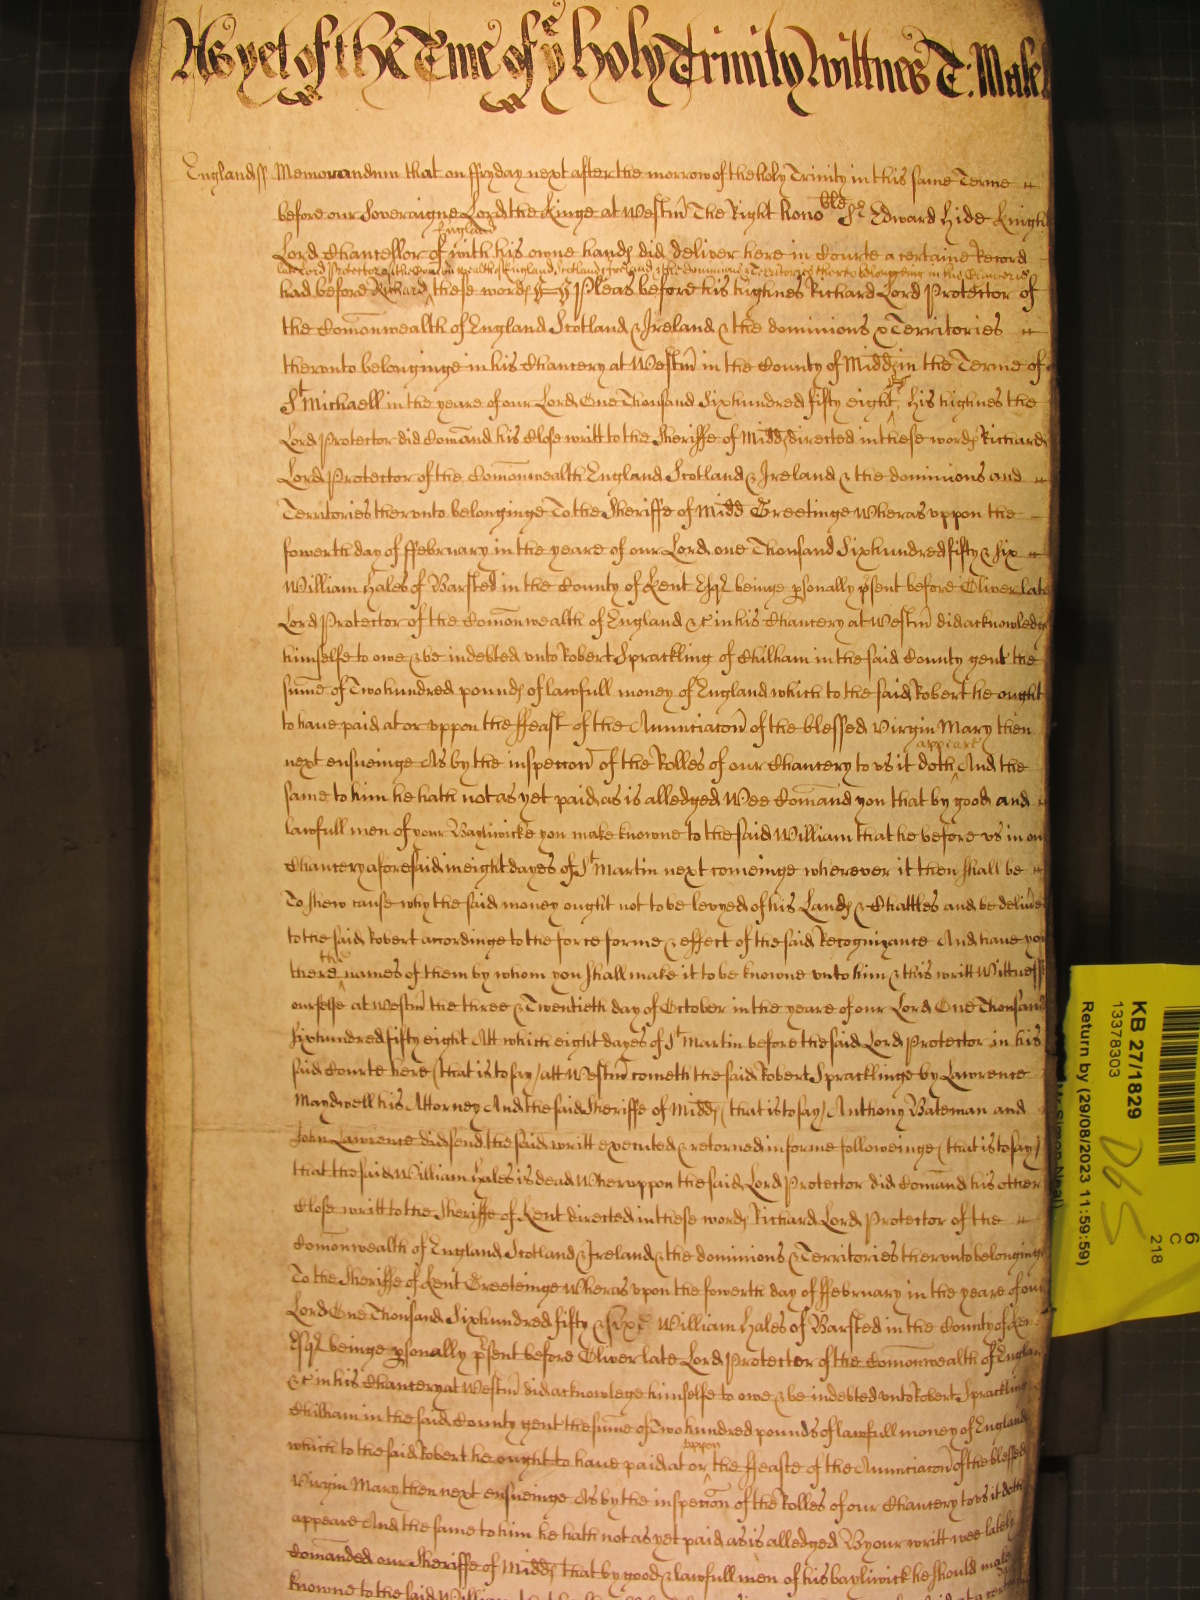 As yet of the Time of ye holy Trinity Wittnes T: Male
England ss Memorandum that on ffryday next after the morrow of the holy Trinity in this same Terme
before our Soveraigne Lord the Kinge at Westm The Right hono ble Sr Edward Hide Knigh
England
Lord Chancellor of with his owne hands did deliver here in Courte a certaine Record
late Lord Protector of the Comonwealth of England Scotland & Ireland & the dominions & Territories therto belonginge in his Chancerie
had before Richard these words Pleas before his highnes Richard Lord Protector of
the Comonwealth of England Scotland & Ireland & the dominions & Territories
therunto belonginge in his Chancery at Westm in the County of Midd in the Terme of
St Michaell in the yeare of our Lord One Thousand Sixhundred fifty eight his highnes the
Lord Protector did Comand his Close writt to the Sheriffe of Midd directed in these words Richard
Lord Protector of the Comonwealth England Scotland & Ireland & the dominions and
Territories therunto belonginge To the Sheriffe of Midd Greetinge Wheras uppon the
fowerth day of ffebruary in the yeare of our Lord one Thousand Sixhundred fifty & six
William Hales of Barsted in the County of Kent Esqr beinge psonally psent before Oliver late
Lord Protector of the Comonwealth of England &c in his Chancery at Westm did acknowledge
himselfe to owe & be indebted unto Robert Sprackling of Chilham in the said County gent the
sume of Two hundred pounds of lawfull money of England which to the said Robert he ought
to have paid at or uppon the ffeast of the Anunciacon of the blessed Virgin Mary then
appeare
next ensueinge As by the inspeccon of the Rolles of our Chancery to us it doth And the
same to him he hath not as yet paid as is alledged Wee Comand you that by good and
lawfull men of your Bayliwicke you make knowne to the said William that he before us in our
Chancery aforesaid in eight dayes of St Martin next comeinge wherever it then shall be
To shew cause why the said money ought not to be levyed of his Lands & Chattles and be delivre
to the said Robert accordinge to the force forme & effect of the said Recognizance And have you
the
there names of them by whom you shall make it to be knowne unto him & this writt Wittnesse
ourselfe at Westm the three & Twentieth day of October in the yeare of our Lord One Thousand
Sixhundred fifty eight Att which eight dayes of St Martin before the said Lord Protector in his
said Courte here (that is to say) att Westm cometh the said Robert Spracklinge by Lawrence
Maydwell his Attorney And the said Sheriffe of Midd (that is to say) Anthony Bateman and
John Lawrence did send the said writt executed & retorned in forme followeinge (that is to say)
that the said William Hales is dead Wheruppon the said Lord Protector did Comand his other
Close writt to the Sheriffe of Kent directed in these words Richard Lord Protector of the
Comonwealth of England Scotland & Ireland & the dominions & Territories therunto belonginge
To the Sheriffe of Kent Greeteinge Wheras upon the fowerth day of ffebruary in the yeare of our
Lord One Thousand Sixhundred fifty & sixe William Hales of Barsted in the County of Ken
Esqr beinge psonally psent before Oliver late Lord Protector of the Comonwealth of Englan
&c in his Chancery at Westm did acknowlege himselfe to owe & be indebted unto Robert Sprackling
Chilham in the said County gent the sume of Two hundred pounds of lawfull money of England
uppon
which to the said Robert he ought to have paid at or the ffeaste of the Anunciacon of the blessed
Virgin Mary then next ensueinge As by the inspeccon of the Rolles of our Chancery to us it doth
appeare And the same to him he hath not as yet paid as is alledged By our writt wee lately
Comanded our Sheriffe of Midd that by good & lawfull men of his bayliwick he should make
knowne to the said William
KB 27/1829
13378303
Return by (29/08/2023 11:59:59)
6
C
218
D65